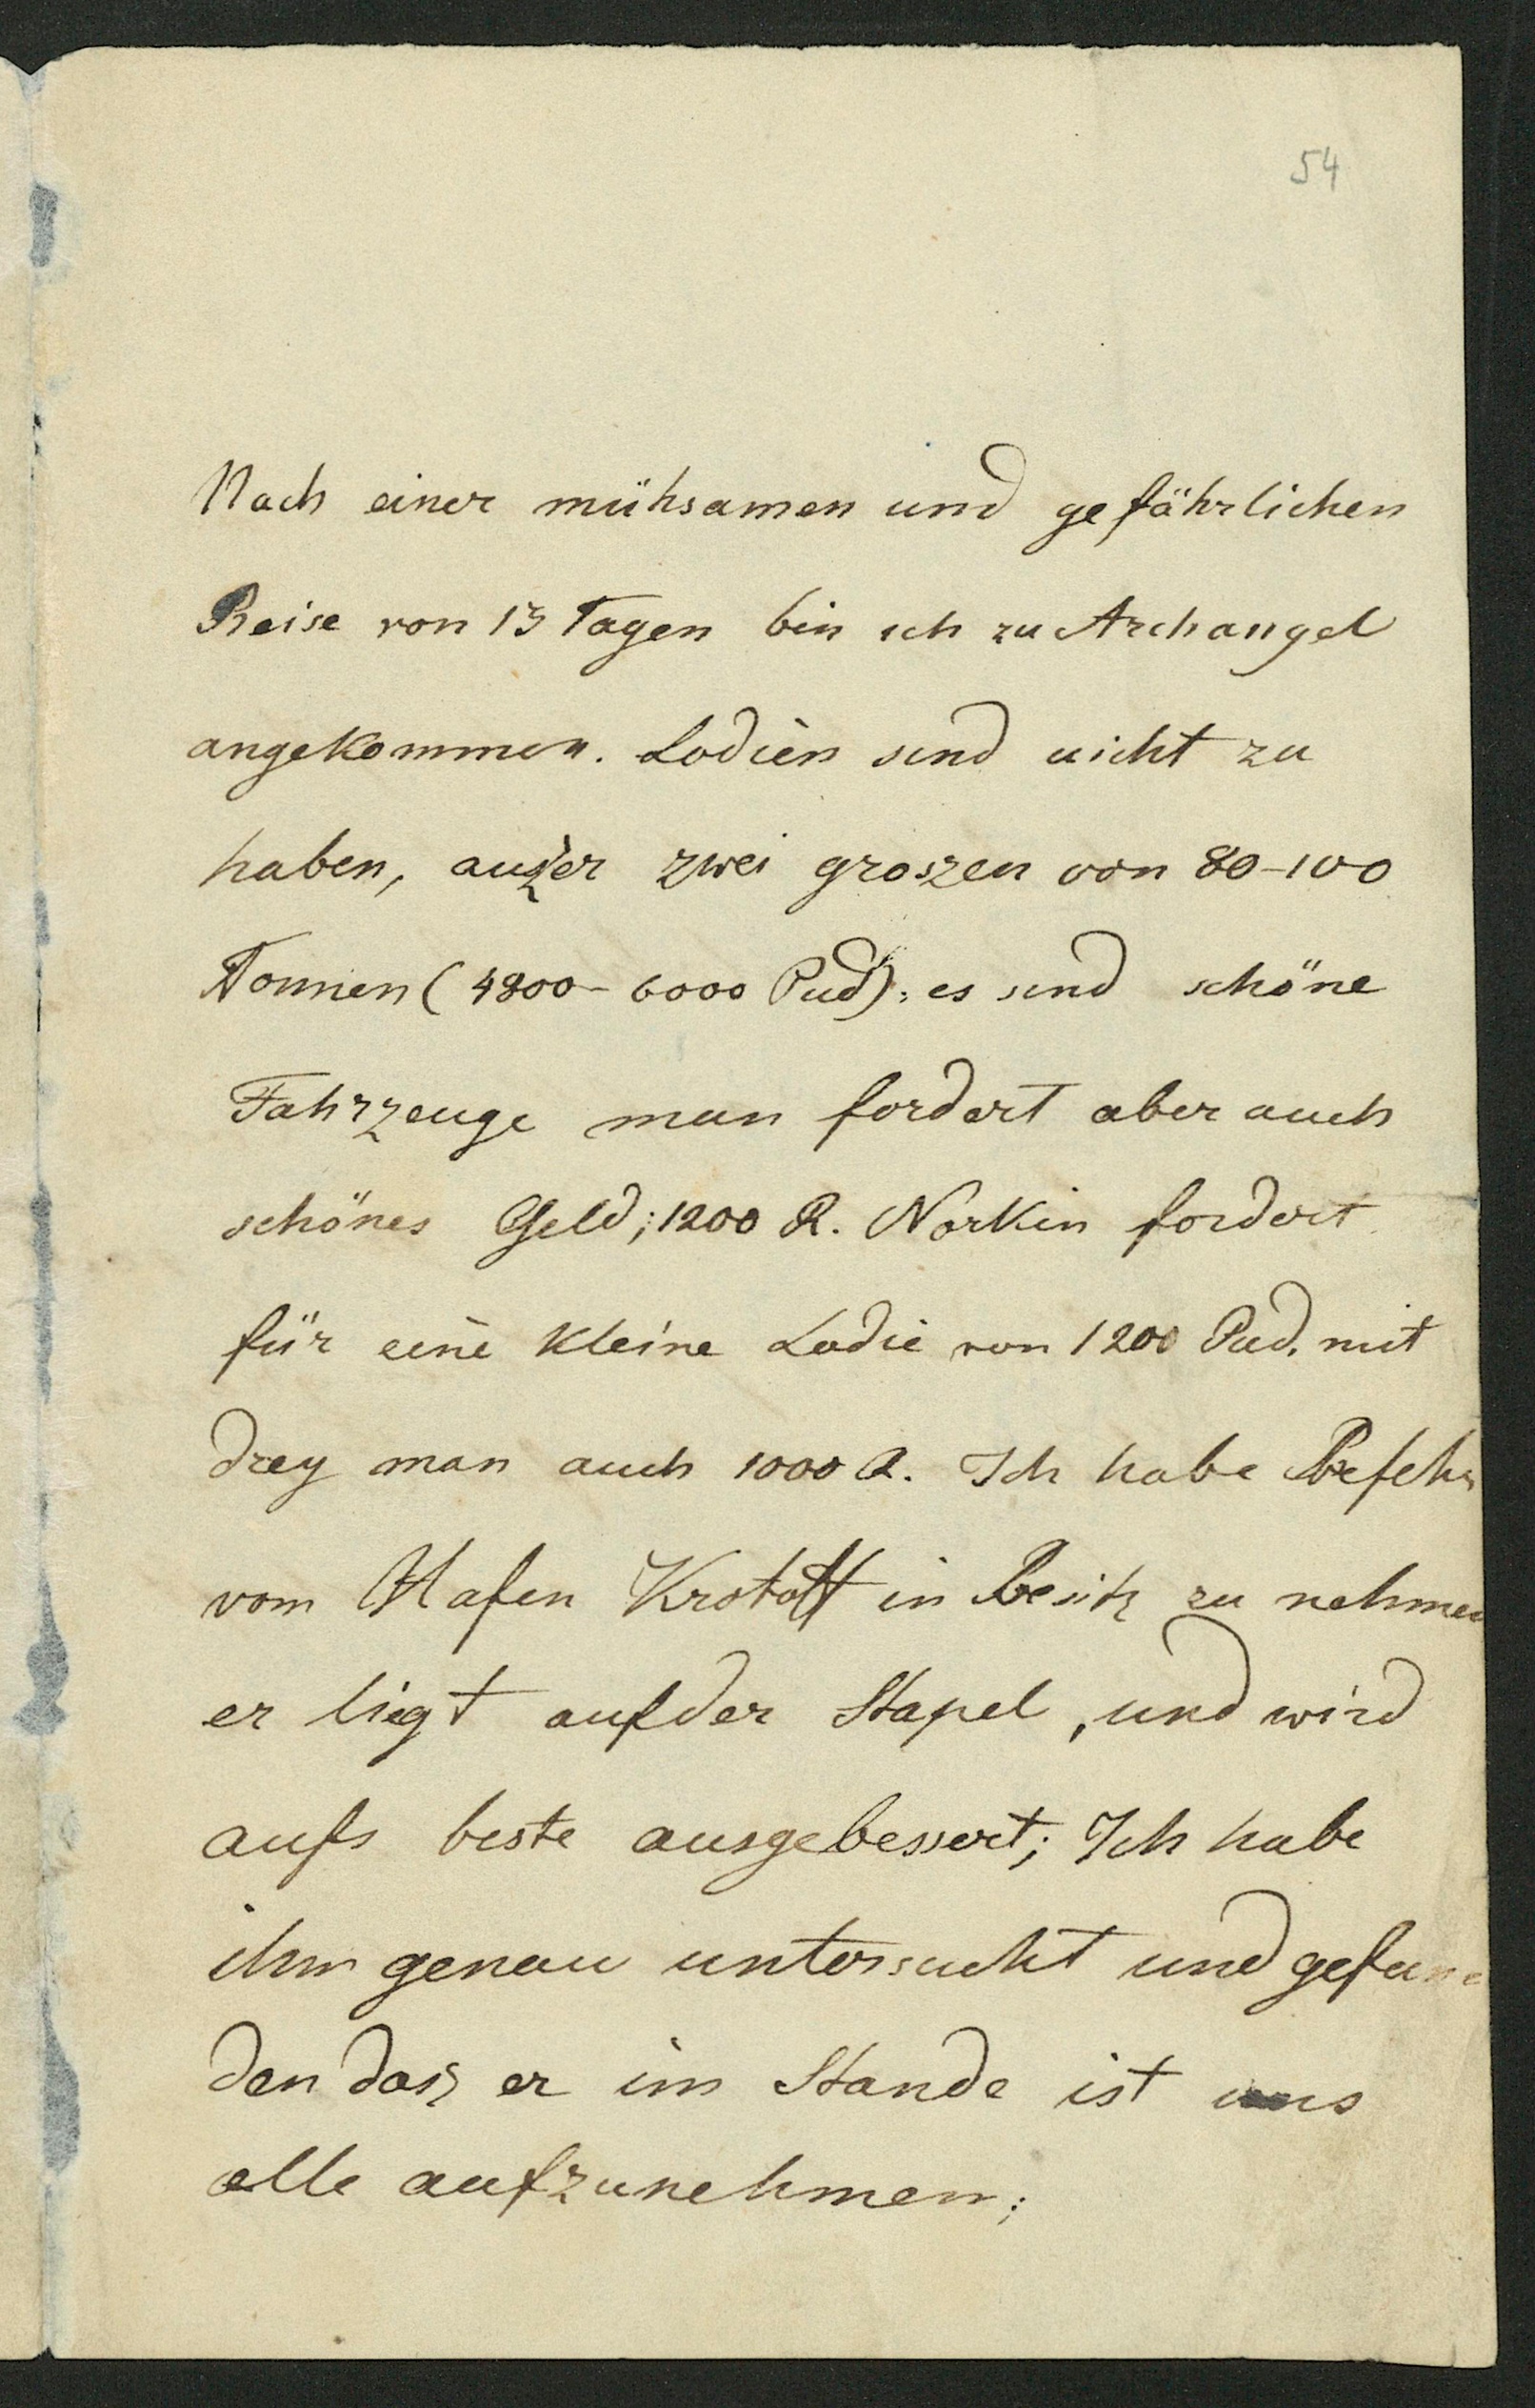 54
Nach einer mühsamen und gefährlichen
Reise von 13 Tagen bin ich zu Archangel
angekommen. Lodien sind nicht zu
haben, außer zwei groszen von 80-100
Tonnen (4800-6000 Pud): es sind schöne
Fahrzeuge man fordert aber auch
schönes Geld; 1200 R. Norkin fordert
für eine kleine Lodie von 1200 Pud. mit
drey man auch 1000 R. Ich habe Befehl
vom Hafen Krotoff in Besitz zu nehmen
er liegt auf der Stapel, und wird
aufs beste ausgebessert; Ich habe
ihm genau untersucht und gefun
den dasz er im Stande ist uns
alle aufzunehmen;